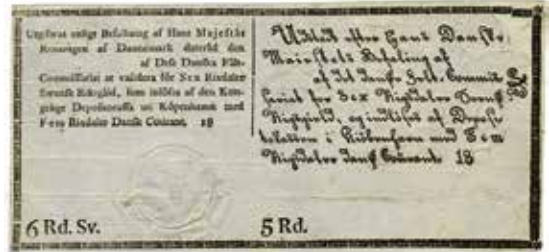 Utgifwas enligt Befallning af Hans Majestät
Konungen af Dannemark daterad den
af Dess Danska Fält-
Commissariat at validera för Sex Riksdaler
Svensk Riksgäld, som inlöses af den Kon-
gelige Depositocassa uti Köpenhamn med
Fem Riksdaler Dansk Courant. 18
Udstedt efter Hans Danske
Majestæts Befaling af
af det danske Felt-Commis-
sariat for Sex Rigsdaler Svensk
Rigsgield, og indløses af Deposi-
tokassen i Kiöbenhavn med Fem
Rigsdaler dansk Courant 18
6 Rd. Sv.
5 Rd.